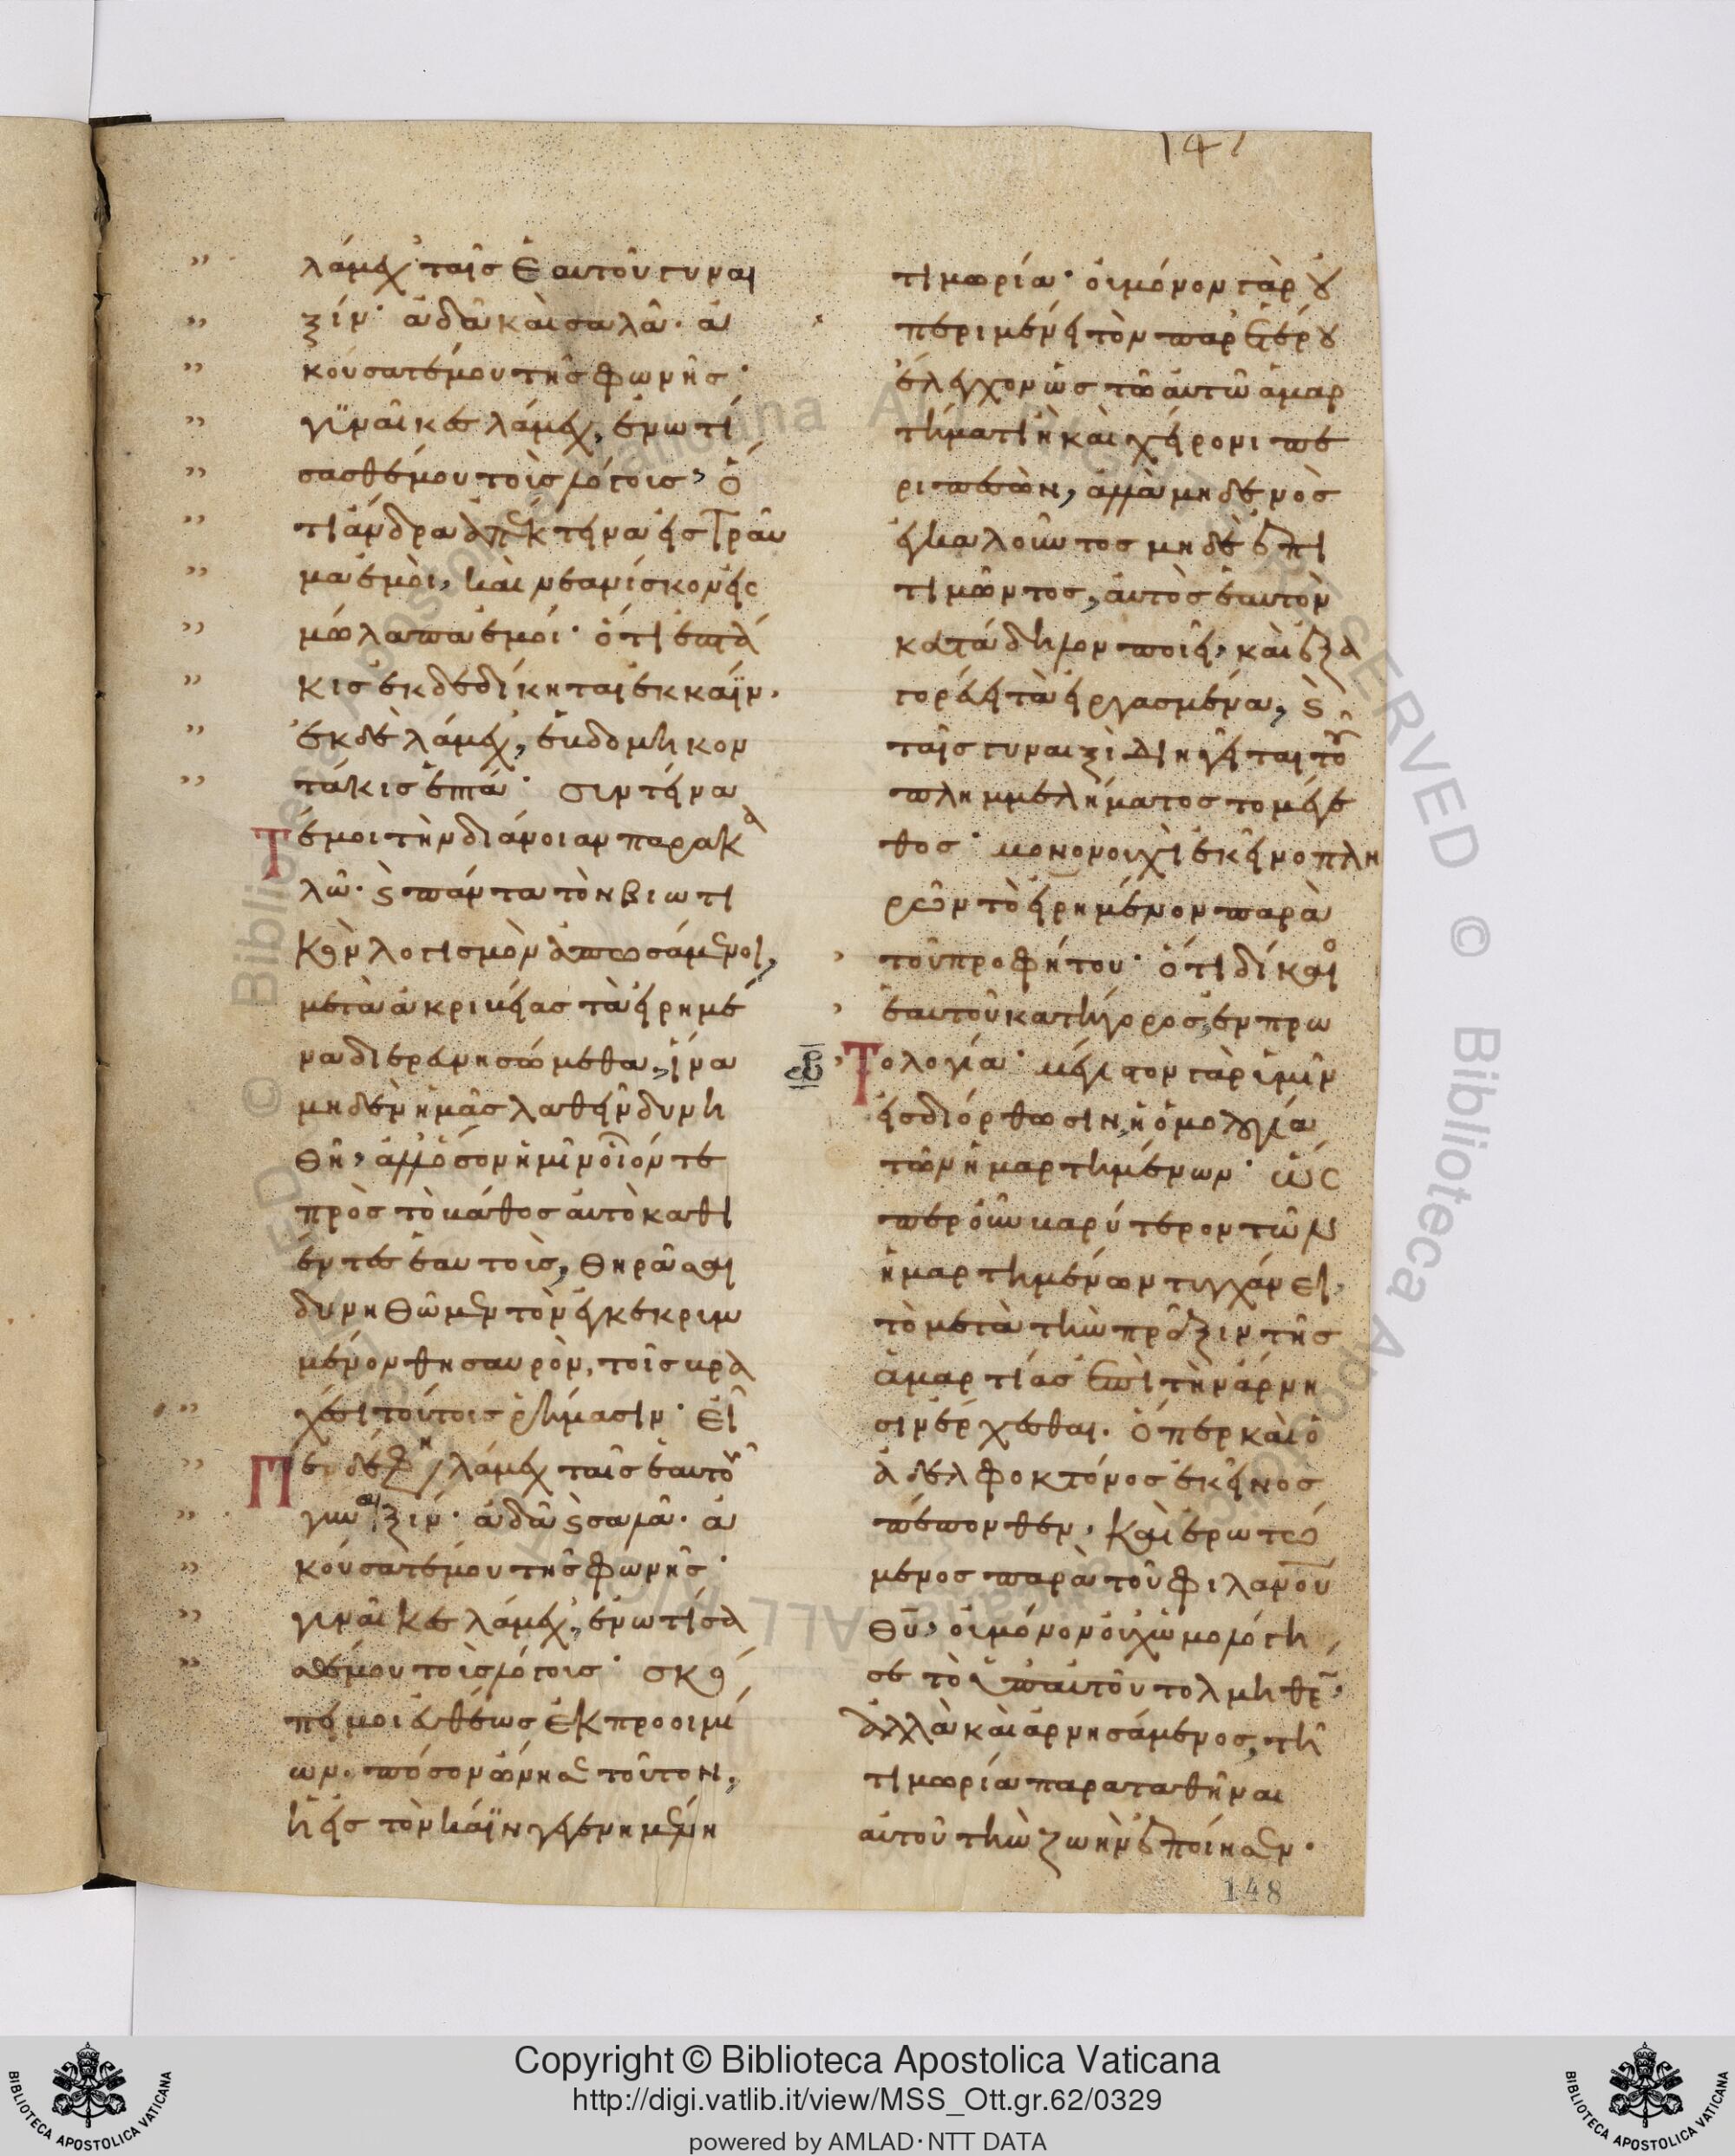 147
λάμεχ ταῖς ἑαυτοῦ γυναι
ξίν· ἀδὰ καὶ σελλᾶ· ἀ
κούσατέ μου τῆς φωνῆς·
γυναῖκες λάμεχ, ἐνωτί
σασθέ μου τοὺς λόγους, ὅ
τι ἄνδρα ἀπέκτεινα εἰς τραῦ
μα ἐμοὶ, καὶ νεανίσκον εἰς
μώλωπα ἐμοί· ὅτι ἑπτά
κις ἐκδεδίκηται ἐκ κάϊν.
ἐκ δὲ λάμεχ, ἑβδομηκον
τάκις ἑπτά· συντείνα
τέ μοι τὴν διάνοιαν παρακα
λῶ· καὶ πάντα τὸν βιωτι
κὸν λογισμὸν ἀπωσάμενοι,
μετὰ ἀκριβείας τὰ εἰρημέ
να διερευνησώμεθα, ἵνα
μηδὲν ἡμᾶς λαθεῖν δυνη
θῇ, ἀλλ' ὅσον ἡμῖν οἷόν τε
πρὸς τὸ βάθος αὐτὸ καθι
έντες ἑαυτοὺς, θηρᾶσαι
δυνηθῶμεν τὸν ἐγκεκρυμ
μένον θησαυρὸν, τοῖς βρα
χέσι τούτοις ῥήμασιν· εἶ
πε δέ φησι λάμεχ ταῖς ἑαυτοῦ
γυναιξίν· ἀδὰ καὶ σελλᾶ· ἀ
κούσατέ μου τῆς φωνῆς·
γυναῖκες λάμεχ, ἐνωτίσα
σθέ μου τοὺς λόγους· σκό
πει μοι εὐθέως ἐκ προοιμί
ων, πόσον ὤνησε τοῦτον,
ἡ εἰς τὸν κάϊν γεγενημένη
τιμωρία· οὐ μόνον γὰρ οὐ
περιμένει τὸν παρ' ἑτέρου
ἔλεγχον ὡς τῷ αὐτῷ ἁμαρ
τήματι ἢ καὶ χείρονι πε
ριπεσὼν, ἀλλὰ μηδενὸς
ἐγκαλοῦντος μηδὲ ἐπι
τιμῶντος, αὐτὸς ἑαυτὸν
κατάδηλον ποιεῖ, καὶ ἐξα
γορεύει τὰ εἰργασμένα, καὶ
ταῖς γυναιξὶ διηγεῖται τοῦ
πλημμελήματος τὸ μέγε
θος· μονονουχὶ ἐκεῖνο πλη
ρῶν τὸ εἰρημένον παρὰ
τοῦ προφήτου· ὅτι δίκαιος
ἑαυτοῦ κατήγορος, ἐν πρω
τολογία· μέγιστον γὰρ ἡμῖν
εἰς διόρθωσιν, ἡ ὁμολογία
τῶν ἡμαρτημένων· ὡς
περ οὖν βαρύτερον τῶν
ἡμαρτημένων τυγχάνει,
τὸ μετὰ τὴν πρᾶξιν τῆς
ἁμαρτίας ἐπὶ τὴν ἄρνη
σιν ἔρχεσθαι. ὅπερ καὶ ὁ
ἀδελφοκτόνος ἐκεῖνος
πέπονθεν, καὶ ἐρωτώ
μενος παρὰ τοῦ φιλανου
θυ, οὐ μόνον οὐχ ὡμολόγη
σε τὸ ὑπ' αὐτοῦ τολμηθὲν,
ἀλλὰ καὶ ἀρνησάμενος, τῇ
τιμωρία παραταθῆναι
αὐτοῦ τὴν ζωὴν ἐποίησεν.
148
Copyright © Biblioteca Apostolica Vaticana
http://digi.vatlib.it/view/MSS_Ott.gr.62/0329
powered by AMLAD·NTT DATA